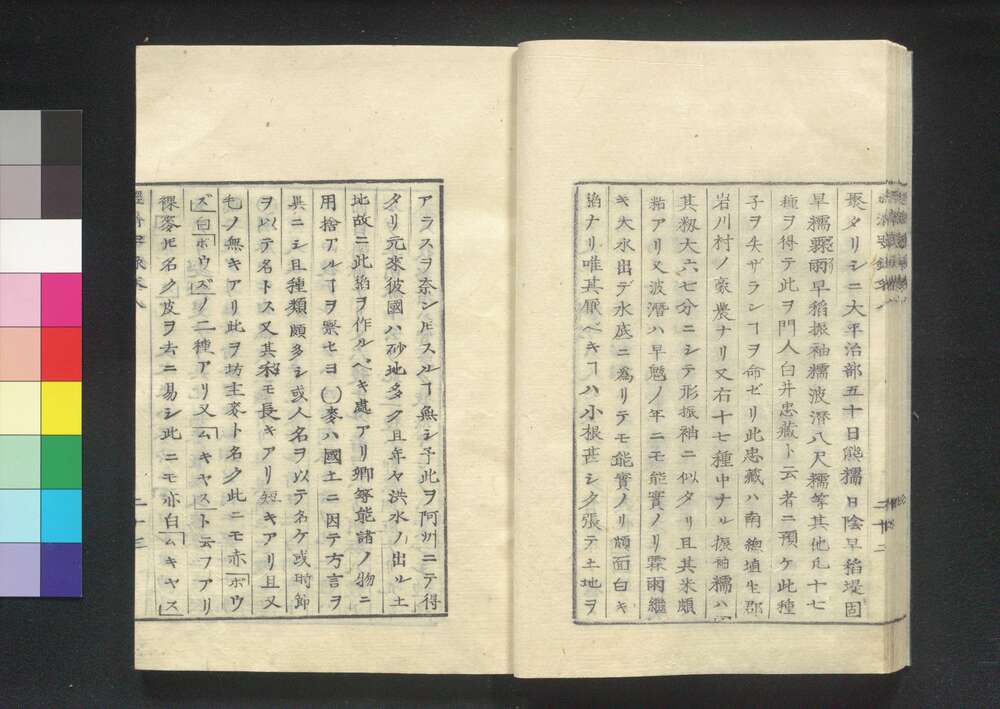 聚タリシニ大平治部五十日熊糯日陰早稲堤固
早糯驟雨早稲振袖糯波潛八尺糯等其他凡十七
種ヲ得テ此ヲ門人白井忠藏ト云者ニ預ケ此種
子ヲ失ザランヿヲ命ゼリ此忠藏ハ南總埴生郡
岩川村ノ豪農ナリ又右十七種中ナル振袖糯ハ
其籾大六七分ニシテ形振袖ニ似タリ且其米頗
粘アリ又波潛ハ旱魃ノ年ニモ能實ノリ霖雨繼
キ大水出デ水底ニ為リテモ能實ノリ頗面白キ
稲ナリ唯其厭ベキヿハ小根甚シク張テ土地ヲ
アラスヲ奈ンㇳモスルヿ無シ予此ヲ阿州ニテ得
タリ元來彼國ハ砂地多ク且年々洪水ノ出ル土
地故ニ此稲ヲ作ルベキ處アリ卿等能諸ノ物ニ
用捨アルヿヲ察セヨ〇麥ハ國土ニ因テ方言ヲ
異ニシ且種類頗多シ或人名ヲ以テ名ケ或時節
ヲ以テ名トス又其モ長キアリ短キアリ且又
毛ノ無キアリ此ヲ坊主麥ト名ク此ニモ亦ボウ
ズ白ボウズノ二種アリ又ムキヤスト云フアリ
裸麥ㇳモ名ク皮ヲ去ニ易シ此ニモ亦白ムキヤス
二十三